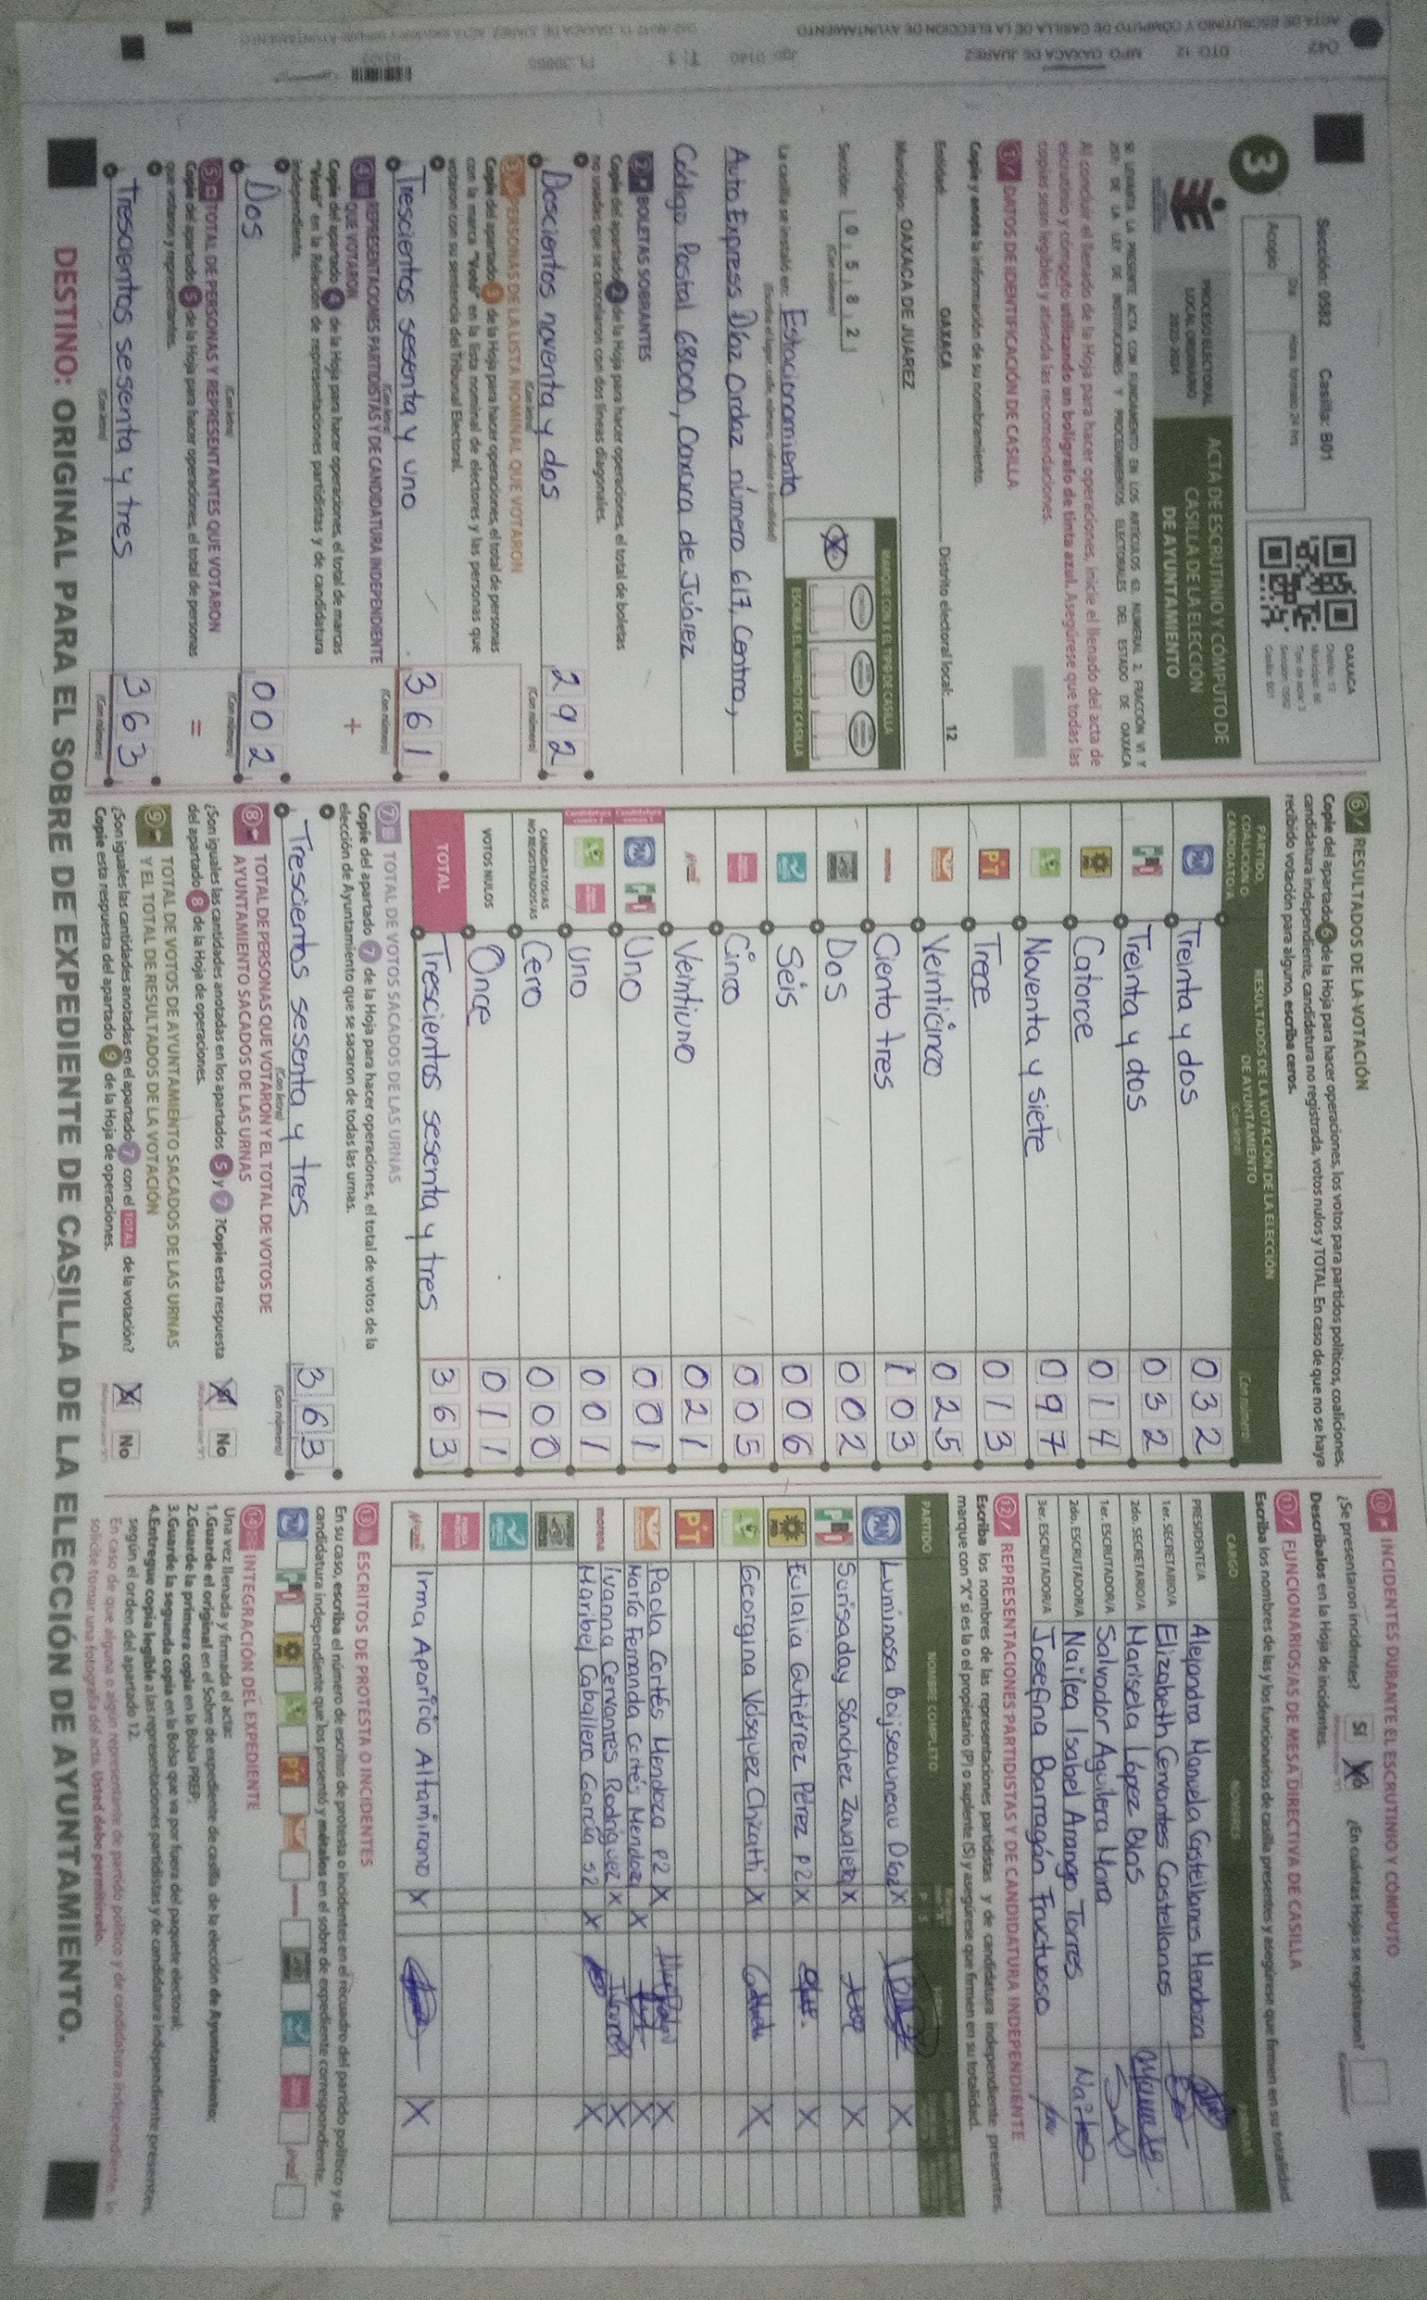 Sección: 0582 Casilla: B01
OAXACA
3
Acopio
PROCESO ELECTORAL
LOCAL ORDINARIO
2023-2024
ACTA DE ESCRUTINIO Y CÓMPUTO DE
CASILLA DE LA ELECCIÓN
DE AYUNTAMIENTO
SE LEVANTA LA PRESENTE ACTA CON FUNDAMENTO EN LOS ARTÍCULOS 63, NUMERAL 2, FRACCIÓN VI Y
DE LA LEY DE INSTITUCIONES Y PROCEDIMIENTOS ELECTORALES DEL ESTADO DE OAXACA
Al concluir el llenado de la Hoja para hacer operaciones, inicie el llenado del acta de
escrutinio y cómputo utilizando un bolígrafo de tinta azul. Asegúrese que todas las
copias sean legibles y atienda las recomendaciones.
1 DATOS DE IDENTIFICACIÓN DE CASILLA
Copie y anote la información de su nombramiento.
Entidad: OAXACA Distrito electoral local: 12
Municipio: OAXACA DE JUAREZ
Sección: 0582
(Con número)
MARQUE CON X EL TIPO DE CASILLA
ESCRIBA EL NÚMERO DE CASILLA
La casilla se instaló en: Estacionamiento
(Escriba el lugar, calle, número, colonia o localidad)
Auto Express Díaz Ordaz número 617, Centro,
Código Postal 68000, Oaxaca de Juárez
2 BOLETAS SOBRANTES
Copie del apartado 2 de la Hoja para hacer operaciones, el total de boletas
no usadas que se cancelaron con dos líneas diagonales.
Doscientos noventa y dos 292
(Con letra) (Con número)
3 PERSONAS DE LA LISTA NOMINAL QUE VOTARON
Copie del apartado 3 de la Hoja para hacer operaciones, el total de personas
con la marca "Votó" en la lista nominal de electores y las personas que
votaron con su sentencia del Tribunal Electoral.
Trescientos sesenta y uno 361
(Con letra) (Con número)
4 REPRESENTACIONES PARTIDISTAS Y DE CANDIDATURA INDEPENDIENTE
QUE VOTARON
Copie del apartado 4 de la Hoja para hacer operaciones, el total de marcas
"Votó" en la Relación de representaciones partidistas y de candidatura
independiente.
+
Dos 002
(Con letra) (Con número)
5 TOTAL DE PERSONAS Y REPRESENTANTES QUE VOTARON
Copie del apartado 5 de la Hoja para hacer operaciones, el total de personas
que votaron y representantes.
=
Trescientos sesenta y tres 363
(Con letra) (Con número)
6 RESULTADOS DE LA VOTACIÓN
Copie del apartado 6 de la Hoja para hacer operaciones, los votos para partidos políticos, coaliciones,
candidatura independiente, candidatura no registrada, votos nulos y TOTAL. En caso de que no se haya
recibido votación para alguno, escriba ceros.
PARTIDO,
COALICIÓN O
CANDIDATO/A
RESULTADOS DE LA VOTACIÓN DE LA ELECCIÓN
DE AYUNTAMIENTO
(Con letra) (Con número)
PAN Treinta y dos 032
PRI Treinta y dos 032
Catorce 014
Noventa y siete 097
PT Trece 013
Veinticinco 025
morena Ciento tres 103
Dos 002
Seis 006
Cinco 005
Veintiuno 021
PAN PRI Uno 001
Uno 001
CANDIDATOS/AS
NO REGISTRADOS/AS Cero 000
VOTOS NULOS Once 011
TOTAL Trescientos sesenta y tres 363
7 TOTAL DE VOTOS SACADOS DE LAS URNAS
Copie del apartado 7 de la Hoja para hacer operaciones, el total de votos de la
elección de Ayuntamiento que se sacaron de todas las urnas.
Trescientos sesenta y tres 363
(Con letra) (Con número)
8 TOTAL DE PERSONAS QUE VOTARON Y EL TOTAL DE VOTOS DE
AYUNTAMIENTO SACADOS DE LAS URNAS
¿Son iguales las cantidades anotadas en los apartados 5 y 7 ? Copie esta respuesta
del apartado 8 de la Hoja de operaciones.
Sí No
9 TOTAL DE VOTOS DE AYUNTAMIENTO SACADOS DE LAS URNAS
Y EL TOTAL DE RESULTADOS DE LA VOTACIÓN
¿Son iguales las cantidades anotadas en el apartado 7 con el TOTAL de la votación?
Copie esta respuesta del apartado 9 de la Hoja de operaciones.
Sí No
10 INCIDENTES DURANTE EL ESCRUTINIO Y CÓMPUTO
¿Se presentaron incidentes? Sí No ¿En cuántas Hojas se registraron?
Descríbalos en la Hoja de incidentes.
11 FUNCIONARIOS/AS DE MESA DIRECTIVA DE CASILLA
Escriba los nombres de las y los funcionarios de casilla presentes y asegúrese que firmen en su totalidad
CARGO NOMBRES FIRMAS
PRESIDENTE/A Alejandra Manuela Castellanos Mendoza
1er. SECRETARIO/A Elizabeth Cervantes Castellanos
2do. SECRETARIO/A Marisela López Blas
1er. ESCRUTADOR/A Salvador Aguilera Mora
2do. ESCRUTADOR/A Nailea Isabel Arango Torres
3er. ESCRUTADOR/A Josefina Barragán Fructuoso
12 REPRESENTACIONES PARTIDISTAS Y DE CANDIDATURA INDEPENDIENTE
Escriba los nombres de las representaciones partidistas y de candidatura independiente presentes,
marque con "X" si es la o el propietario (P) o suplente (S) y asegúrese que firmen en su totalidad.
PARTIDO NOMBRE COMPLETO
PAN Luminosa Boijseauneau Díaz X X
PRI Sarisaday Sánchez Zavaleta X X
Eulalia Gutiérrez Pérez P2 X X
Georgina Vásquez Chigatti X X
PT
Paola Cortés Mendoza P2 X X
María Fernanda Cortés Mendoza X X
morena Ivanna Cervantes Rodríguez X X
Maribel Caballero García S2 X X
Irma Aparicio Altamirano X X
13 ESCRITOS DE PROTESTA O INCIDENTES
En su caso, escriba el número de escritos de protesta o incidentes en el recuadro del partido político y de
candidatura independiente que los presentó y métalos en el sobre de expediente correspondiente.
14 INTEGRACIÓN DEL EXPEDIENTE
Una vez llenada y firmada el acta:
1. Guarde el original en el Sobre de expediente de casilla de la elección de Ayuntamiento;
2. Guarde la primera copia en la Bolsa PREP;
3. Guarde la segunda copia en la Bolsa que va por fuera del paquete electoral;
4. Entregue copia legible a las representaciones partidistas y de candidatura independiente presentes,
según el orden del apartado 12.
En caso de que alguna o algún representante de partido político y de candidatura independiente, lo
solicite tomar una fotografía del acta, Usted debe permitírselo.
DESTINO: ORIGINAL PARA EL SOBRE DE EXPEDIENTE DE CASILLA DE LA ELECCIÓN DE AYUNTAMIENTO.